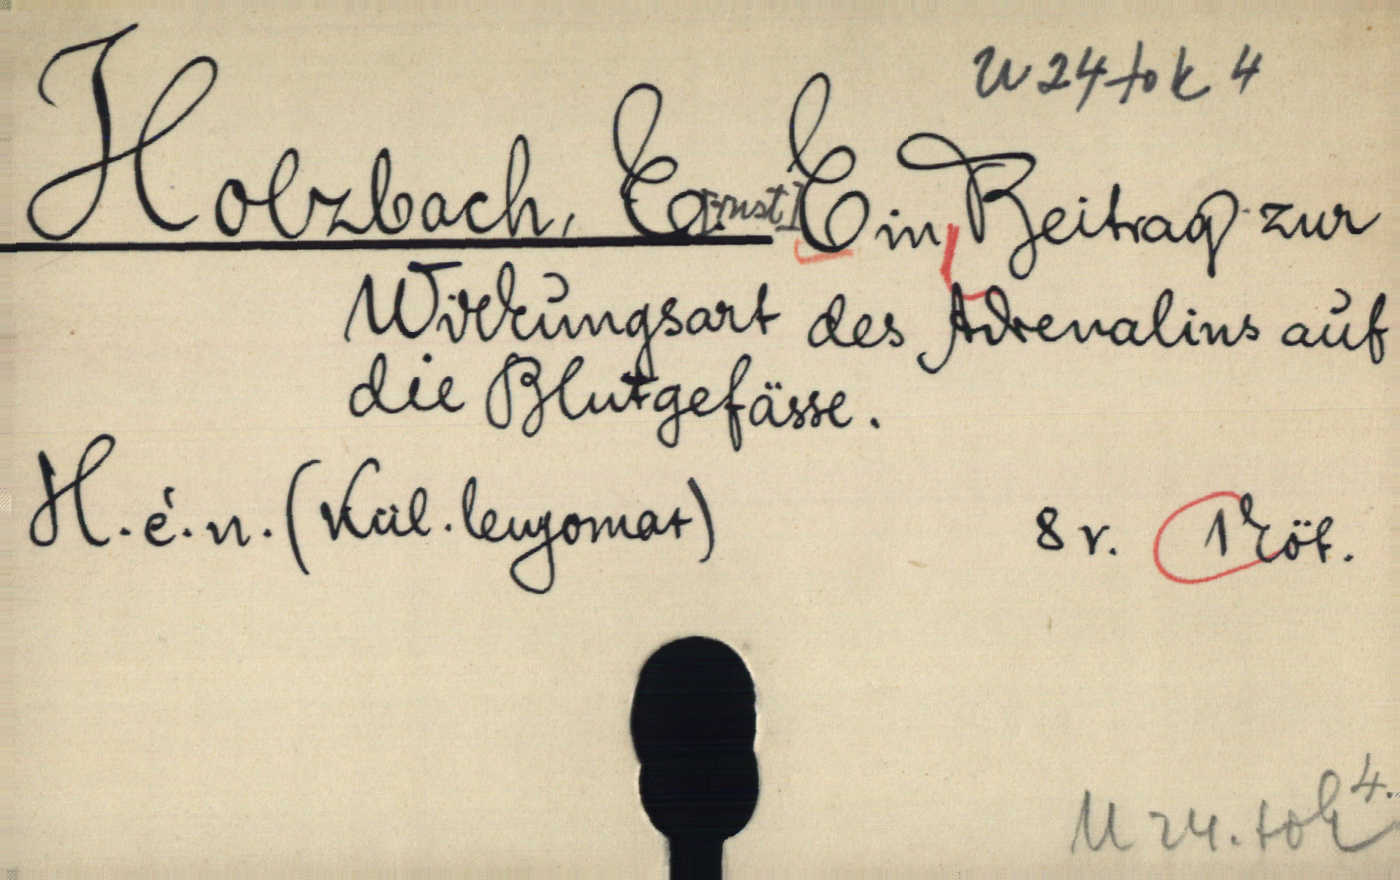 U 24 tok 4
Holzbach, E[rnst] Ein Beitrag zur
Wirkungsart des Adrenalins auf
die Blutgefässe.
H. é. n. (Kül. lenyomat) 8 r. 1 köt.
U 24. tok 4.